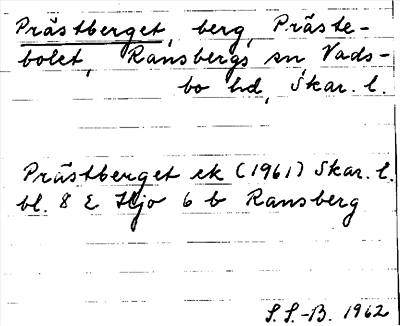 Prästberget, berg, Präste-
bolet, Ransbergs sn, Vads-
bo hd, Skar. l.
Prästberget ek (1961) Skar. l.
bl. 8 E Hjo 6 b Ransberg
S. S.-B. 1962